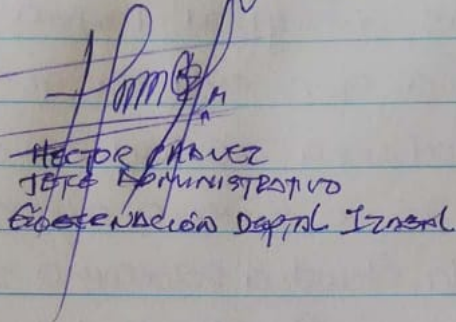 HECTOR CHAVEZ
JEFE ADMINISTRATIVO
GOBERNACIÓN DEPTAL IZABAL